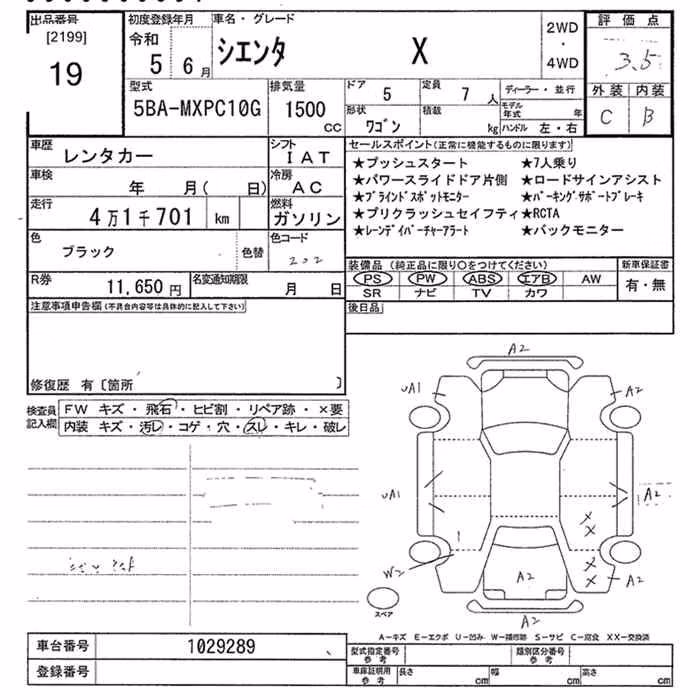 出品番号 初度登録年月 車名・グレード 2WD ・ 4WD 評価点
[2199] 令和
19 5 6月 シエンタ X 3.5
型式 排気量 ドア 5 定員 7人 ディーラー・並行 外装 内装
5BA-MXPC10G 1500 CC 形状 ワゴン 積載 kg モデル年式 年 C B
ハンドル 左・右
車歴 レンタカー シフト IAT セールスポイント(正常に機能するものに限ります)
車検 年 月( 日) 冷房 AC
★プッシュスタート ★7人乗り
★パワースライドドア片側 ★ロードサインアシスト
★ブラインドスポットモニター ★パーキングサポートブレーキ
★プリクラッシュセイフティ★RCTA
★レーンデイパーチャーアラート ★バックモニター
走行 4万1千701 km 燃料 ガソリン
色 ブラック 色替 色コード 202
装備品 (純正品に限り○をつけてください) 新車保証書
PS PW ABS エアB AW 有・無
SR ナビ TV カワ
R券 11,650円 名変通知期限 月 日
後日品
注意事項申告欄(不具合内容等は具体的に記入して下さい)
修復歴 有〔箇所 〕
検査員記入欄 FW キズ・飛石・ヒビ割・リペア跡・×要
内装 キズ・汚レ・コゲ・穴・スレ・キレ・破レ
A2
uA1 A2
uA1 A2
W2 A2 A2
スペア
A2
A-キズ E-エクボ U-凹み W-補修跡 S-サビ C-腐食 XX-交換済
車台番号 1029289
型式指定番号 参考 類別区分番号 参考
登録番号
車庫証明用 参考 長さ cm 幅 cm 高さ cm